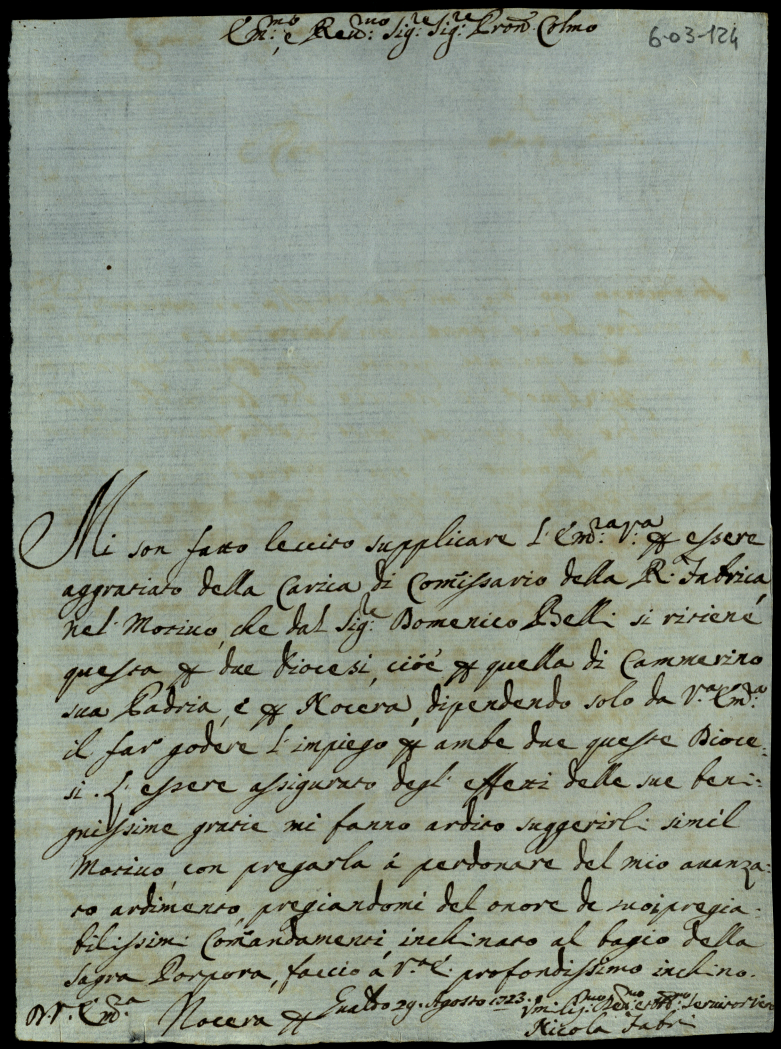 Em.mo e Reu.mo Sig.re Sig.re Pron Colmo
6-03-124
Mi son fatto leccito supplicare l'Em.a V.a p essere
aggratiato della Carica di Comissario della R. Fabrica
nel Motiuo, che dal Sig.re Domenico Belli si ritiene
questa p due Diocesi, cioè p quella di Cammerino
sua Padria, e p Nocera, dipendendo solo da V.a Em.a
il far godere l'impiego p ambe due queste Dioce-
si. L'essere assigurato degl'effetti delle sue beni-
gnissime gratie mi fanno ardito suggerirli simil
Motiuo, con pregarla à perdonare del mio auanza-
to ardimento, pregiandomi del onore de suoi pregia-
bilissimi Comandamenti, inchinato al bagio della
Sagra Porpora, faccio à V.a E. profondissimo inchino.
D. V. Em.a
Nocera p Gualdo 29. Agosto 1723.
Vm.o Deu.mo et Obl.mo Seruitor Vero
Nicola Fabri